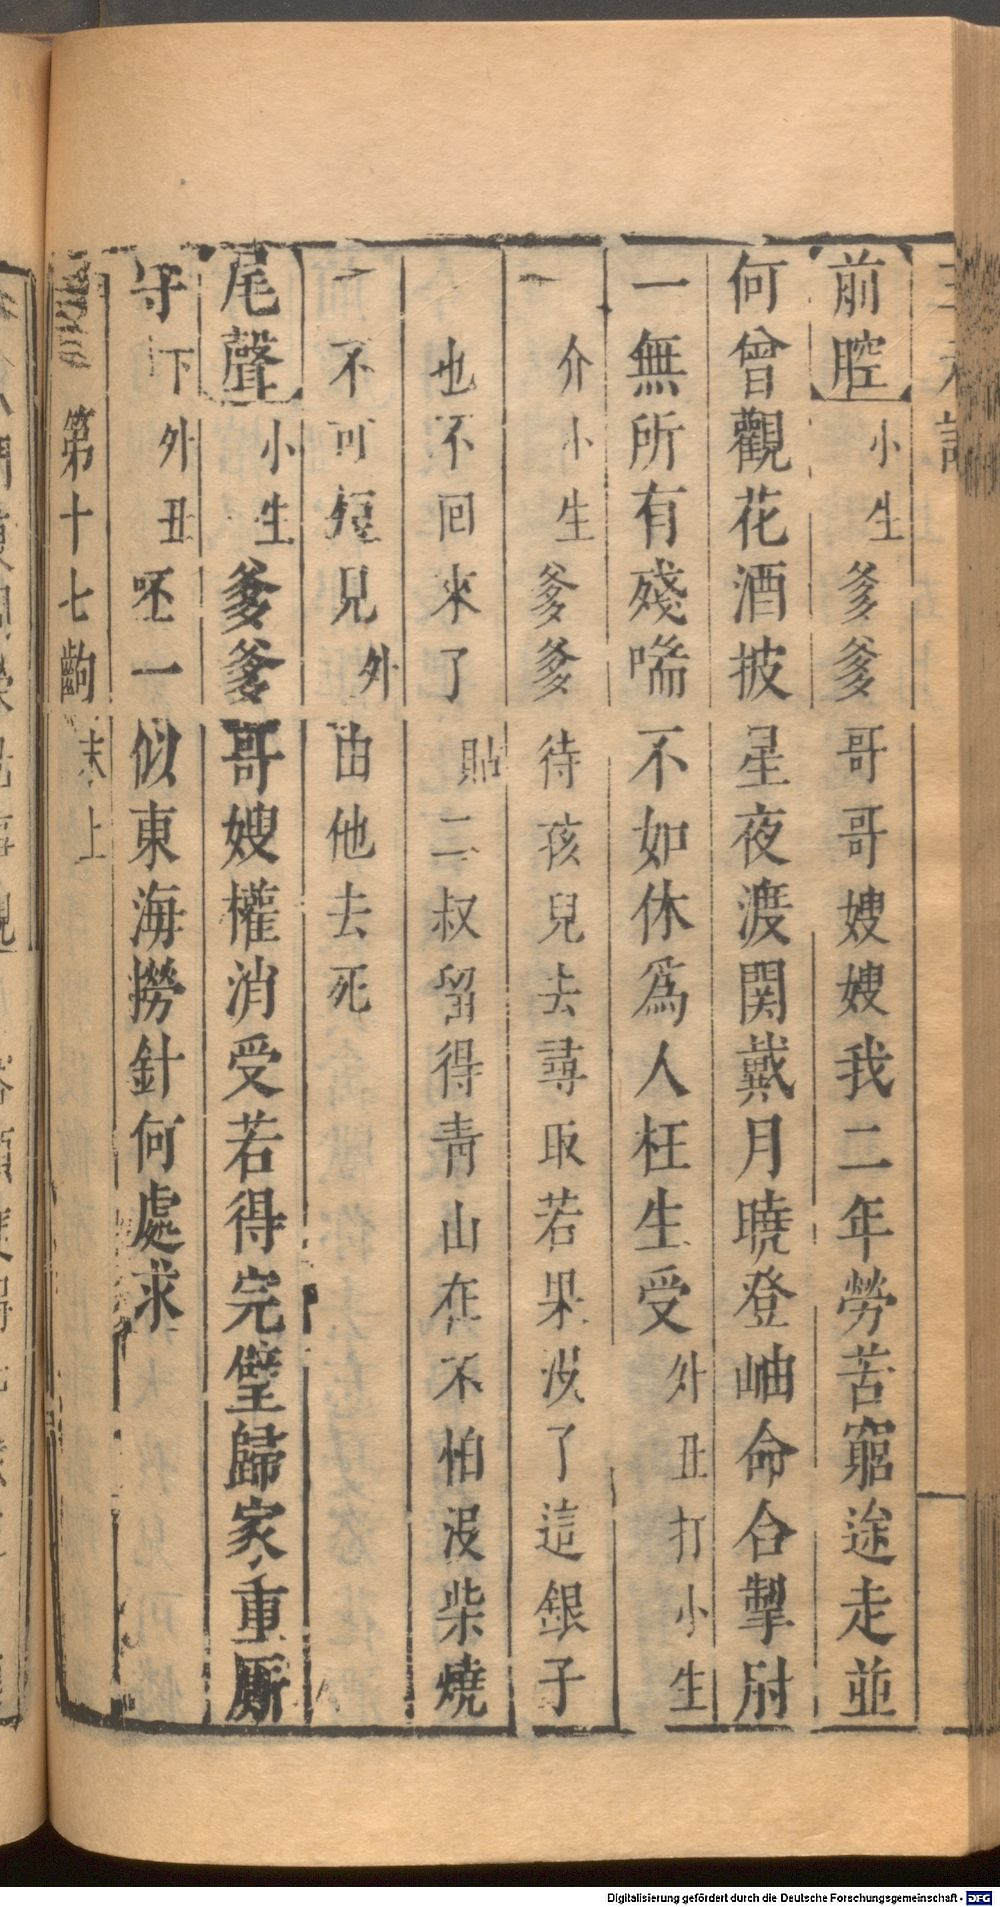 前腔小生爹爹哥哥嫂嫂我二年勞苦窮途走並
何曾觀花酒披星夜渡関戴月曉登岫命合掣肘
一無所有殘喘不如休為人枉生受外丑打小生
介小生爹爹待孩兒去尋取若果沒了這銀子
也不回來了貼二叔留得青山在不怕沒柴燒
不可短見外由他去死
尾聲小生爹爹哥嫂權消受若得完璧歸家重厮
守下外丑呸一似東海撈針何處求
第十七齣末上
Digitalisierung gefördert durch die Deutsche Forschungsgemeinschaft - DFG